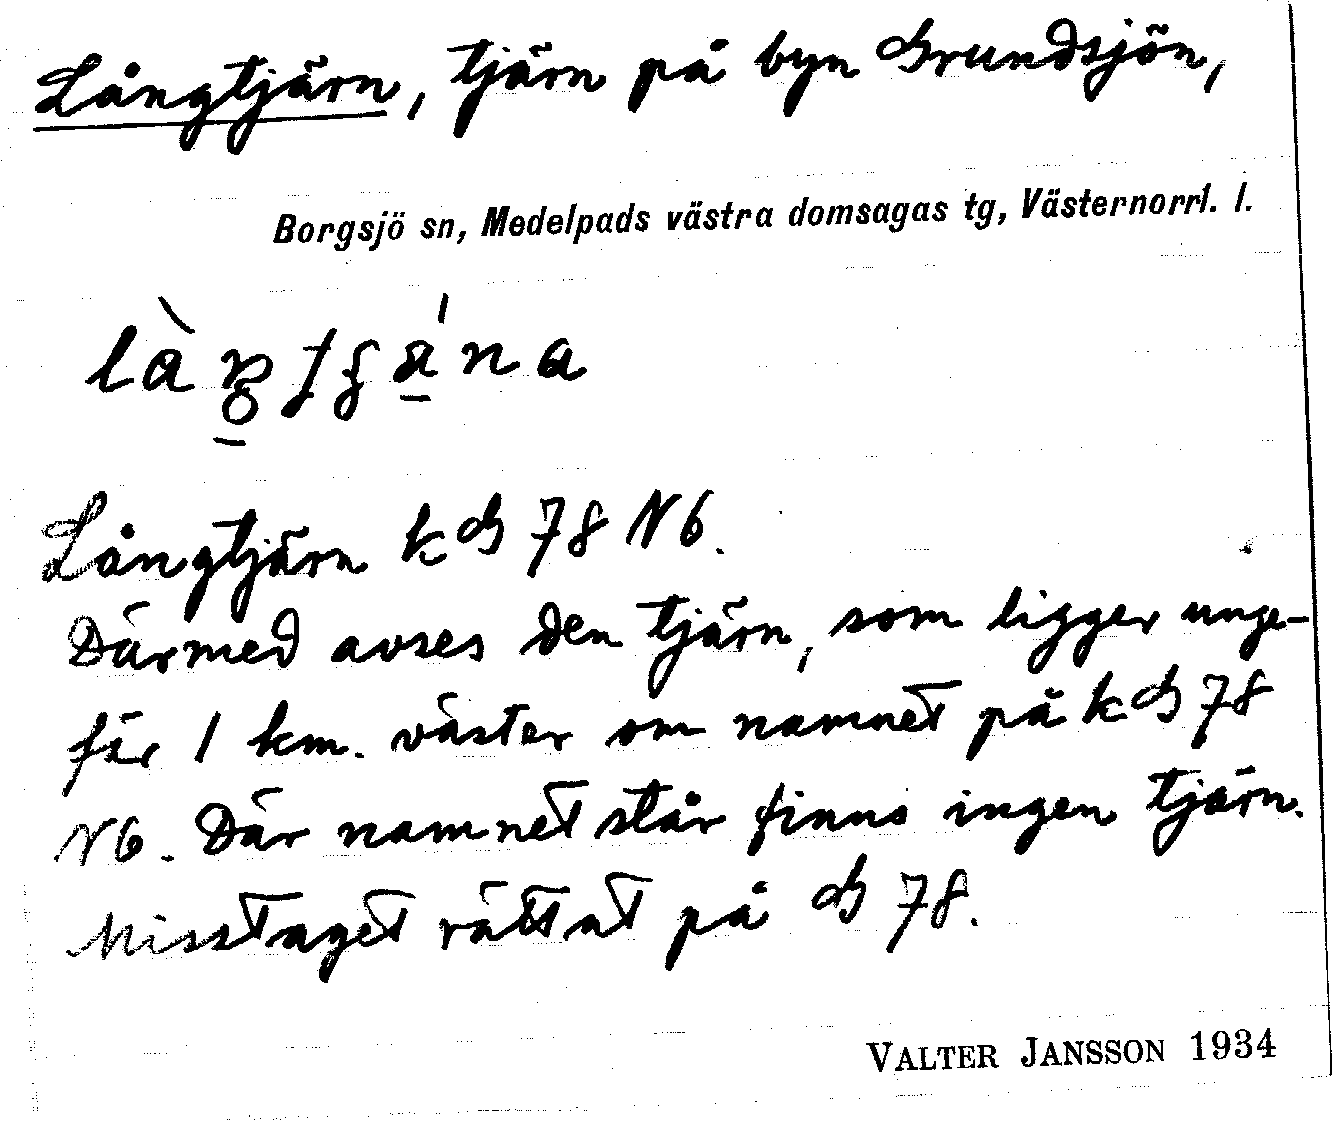 Långtjärn, tjärn på byn Grundsjön,
Borgsjö sn, Medelpads västra domsagas tg, Västernorrl. l.
Långtjärn k G 78 N6.
Därmed avses den tjärn, som ligger unge-
fär 1 km. väster om namnet på k G 78
N6. Där namnet står finns ingen tjärn.
Misstaget rättat på G 78.
VALTER JANSSON 1934